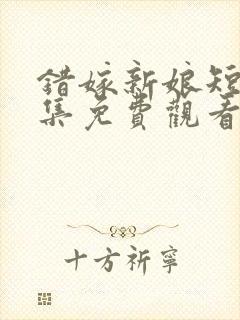 錯嫁新娘短
集免費觀看
十方祈寧